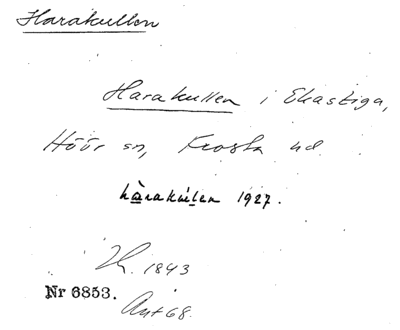 Harakullen
Harakullen i Ekastiga,
Höör sn, Frosta hd
hàrakúlen 1927.
Lk. 1843
Nr 6853.
Ant 68.